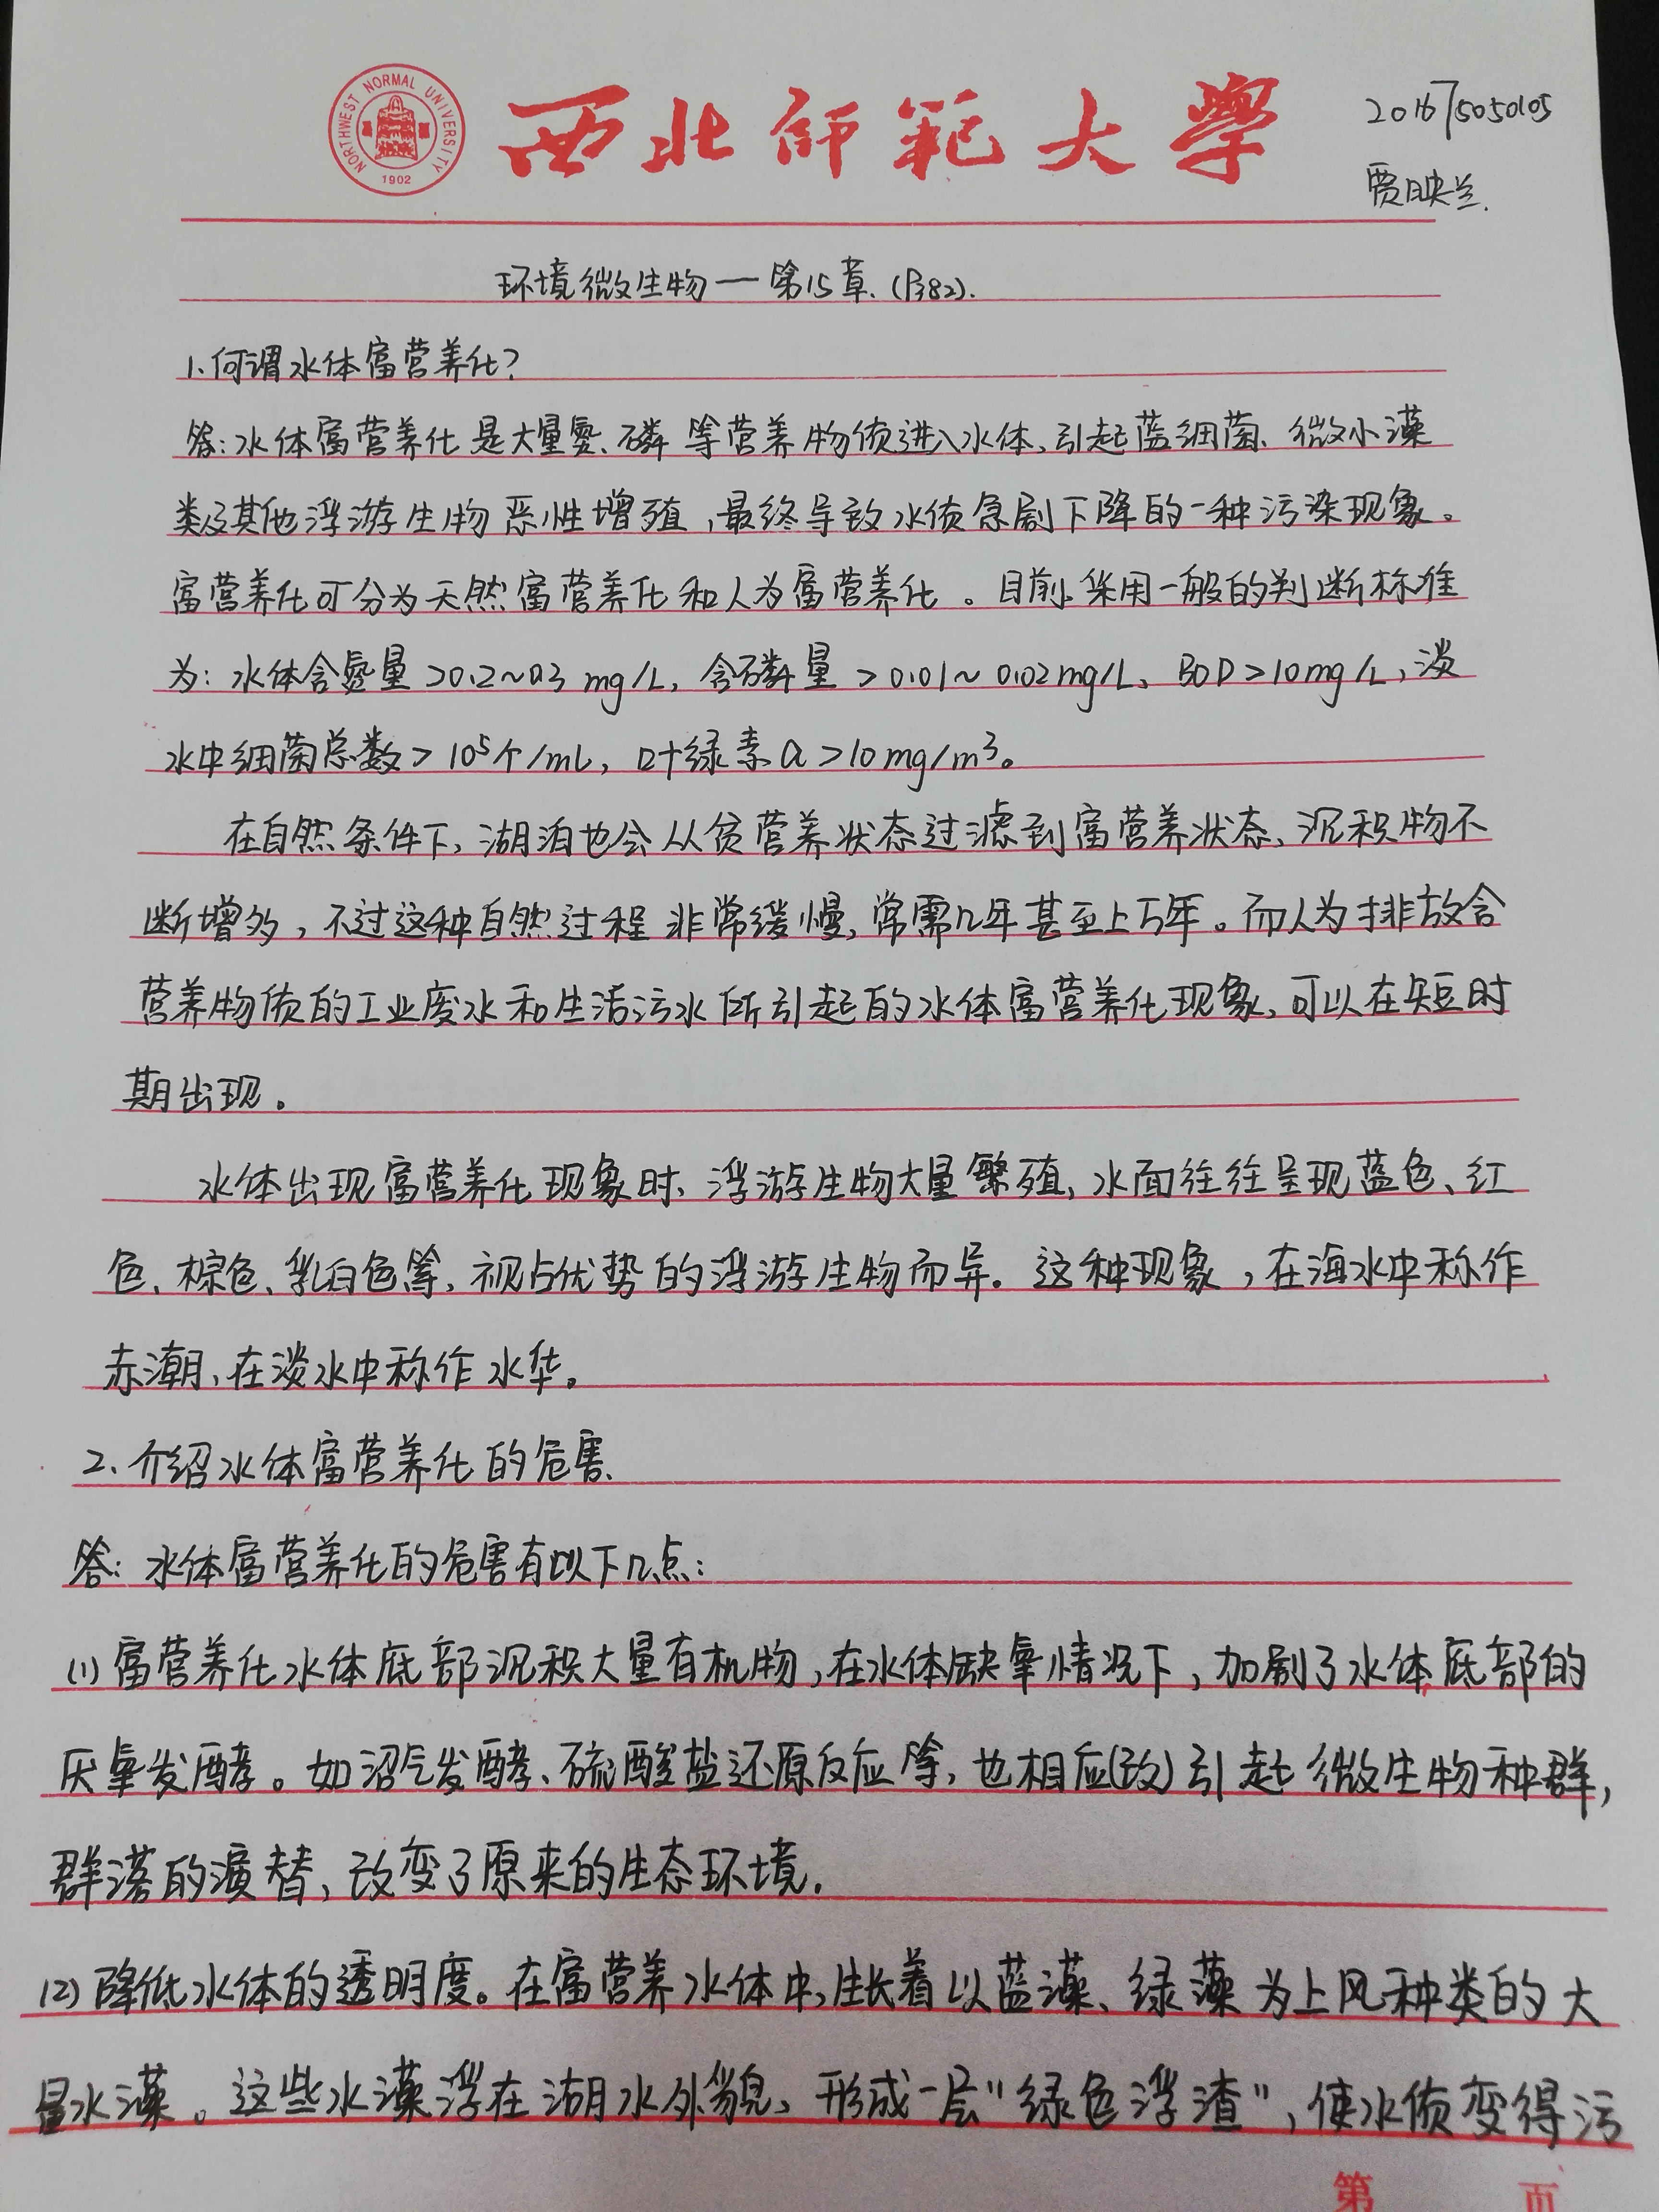 NORTHWEST NORMAL UNIVERSITY
1902
西北师范大学
贾映兰.
环境微生物一第15章.(P382).
1.何谓水体富营养化?
答:水体富营养化是大量氮、磷等营养物质进入水体、引起蓝细菌、微小藻
类及其他浮游生物恶性增殖,最终导致水质急剧下降的一种污染现象。
富营养化可分为天然富营养化和人为富营养化。目前采用一般的判断标准
为:水体含氮量>0.2~0.3 mg/L,含磷量>0.01~0.02mg/L、BOD>10mg/L,淡
水中细菌总数>10⁵个/mL,叶绿素a>10mg/m³。
在自然条件下,湖泊也会从贫营养状态过滤到富营养状态、沉积物不
断增多,不过这种自然过程非常缓慢,常需几年甚至上万年。而人为排放含
营养物质的工业废水和生活污水所引起的水体富营养化现象,可以在短时
期出现。
水体出现富营养化现象时、浮游生物大量繁殖,水面往往呈现蓝色、红
色、棕色、乳白色等,视占优势的浮游生物而异。这种现象,在海水中称作
赤潮,在淡水中称作水华。
2、介绍水体富营养化的危害
答:水体富营养化的危害有以下几点:
(1)富营养化水体底部沉积大量有机物,在水体缺氧情况下,加剧了水体底部的
厌氧发酵。如沼气发酵、硫酸盐还原反应等,也相应(改)引起微生物种群,
群落的演替,改变了原来的生态环境.
(2)降低水体的透明度。在富营养水体中,生长着以蓝藻、绿藻为上风种类的大
量水藻。这些水藻浮在湖水外貌、形成一层"绿色浮渣",使水质变得污
第 页